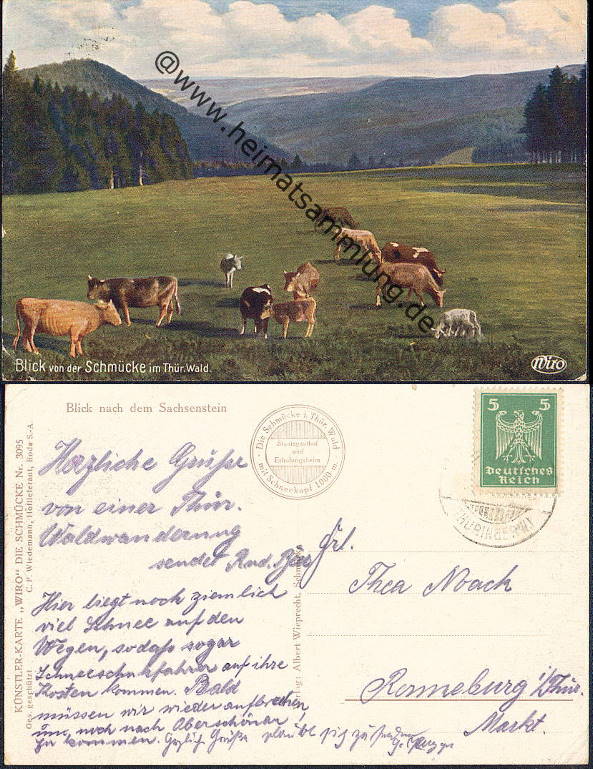 @www.heimatsammlung.de
Blick von der Schmücke im Thür. Wald.
Wiro
Blick nach dem Sachsenstein
Die Schmücke i. Thür. Wald
mit Schneekopf 1000 m.
Staatsgasthof
und
Erholungsheim
5 5
Deutsches
Reich
KÜNSTLER-KARTE „WIRO" DIE SCHMÜCKE Nr. 3095
Ges. geschützt C. F. Wiedemann, Hoflieferant, Roda S.-A.
Verlag: Albert Wieprecht, Schmücke
Herzliche Grüße
von einer Thür.
Waldwanderung
sendet Rud.
Hier liegt noch ziemlich
viel Schnee auf den
Wegen, sodaß sogar
Schneeschuhfahrer auf ihre
Kosten kommen. Bald
müssen wir wieder aufbrechen,
um noch nach Oberschönau
zu kommen. Herzlich Grüße
Frl.
Thea Noack
Ronneburg i/Thür.
Markt.